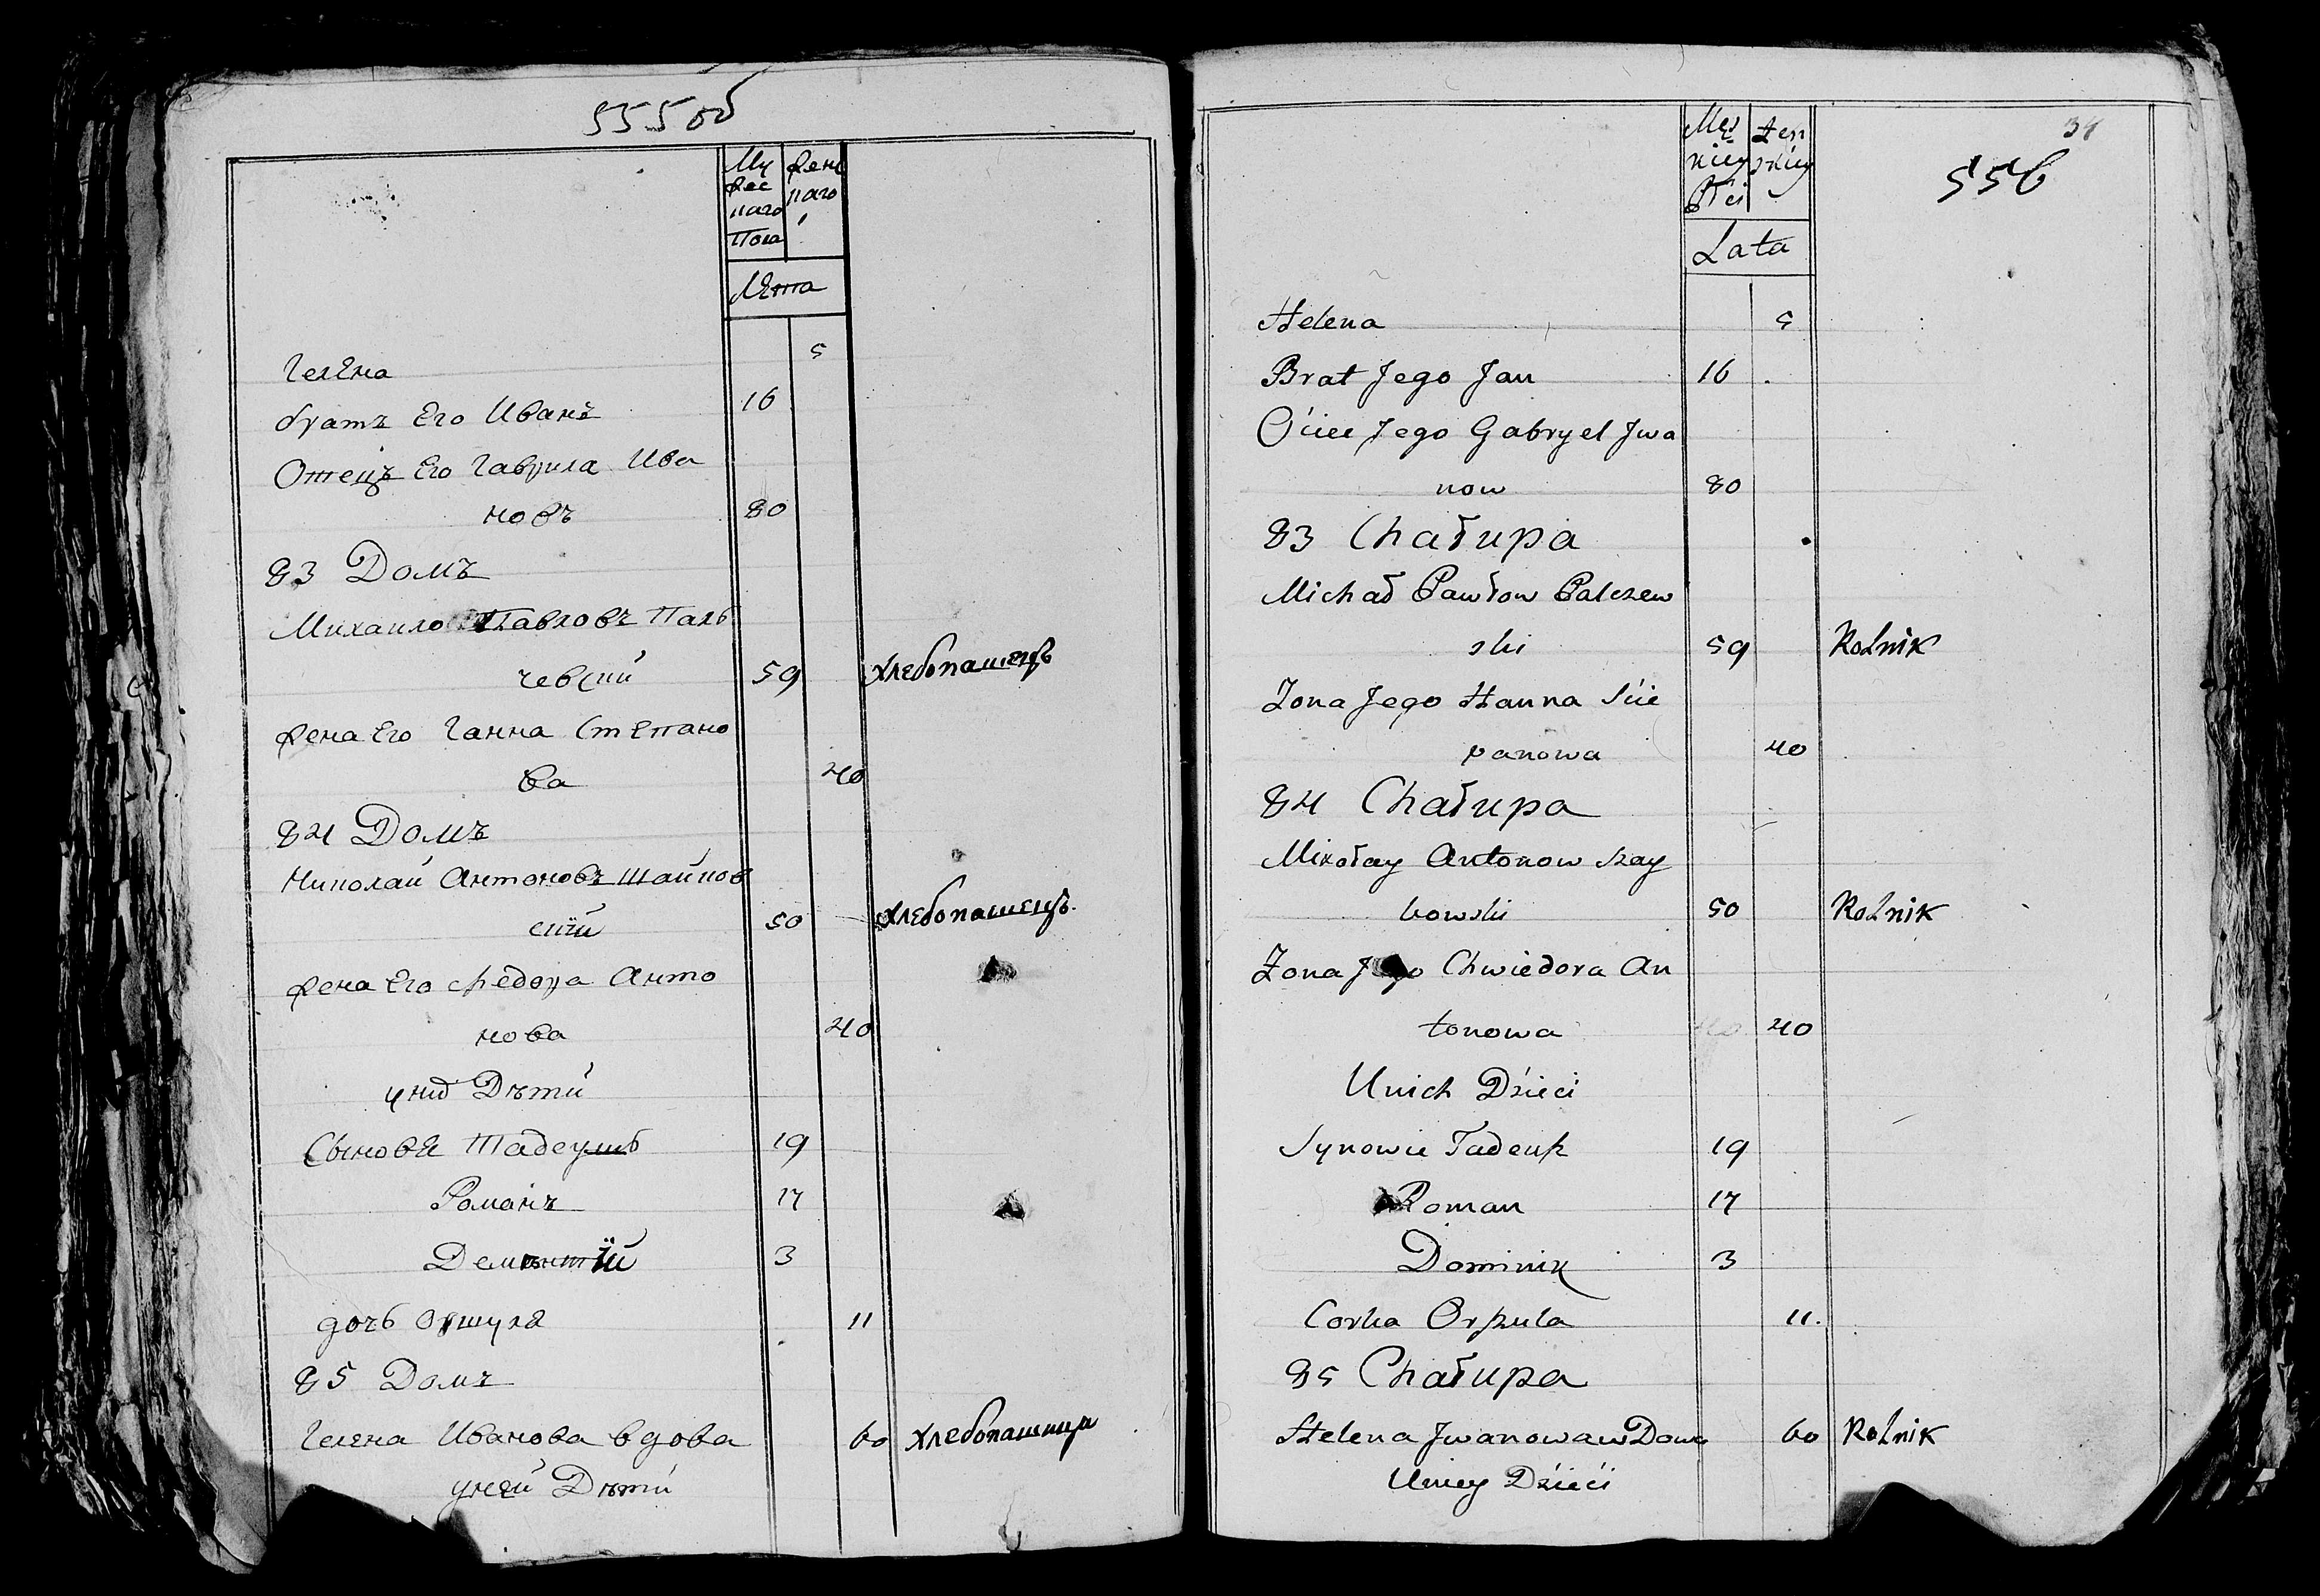 555об
Му
жес
каго
Пола
Жен
каго
Лѣта
Гелена 5
братъ Его Иванъ 16
Отецъ Его Гаврила Ива
новъ 80
83 Домъ
Михаило Павловъ Паль
чевскии 59 хлебопашецъ
жена Его Ганна Степано
ва 40
84 Домъ
Николай Антоновъ Шайков
скій 50 хлебопашецъ
жена Его Федора Анто
нова 40
уних Дѣти
Сыновя Тадеушъ 19
Романъ 17
Дементій 3
дочь Оршуля 11
85 Домъ
Гелена Иванова вдова 60
уней Дѣти
34
556
Męz
kiey
Płci
Żen
skiey
Lata
Helena 5
Brat Jego Jan 16
Ociec Jego Gabryel Jwa
now 80
83 Chałupa
Michał Pawłow Palczew
ski 59 Rolnik
Żona Jego Hanna Scie
panowa 40
84 Chałupa
Mikołay Antonow Szay
kowski 50 Rolnik
Żona Jego Chwiedora An
tonowa 40
Unich Dzieci
Synowie Tadeusz 19
Roman 17
Dominik 3
Corka Orszula 11.
85 Chałupa
Helena Jwanowa wDowa 60 Rolnik
Uniey Dzieci